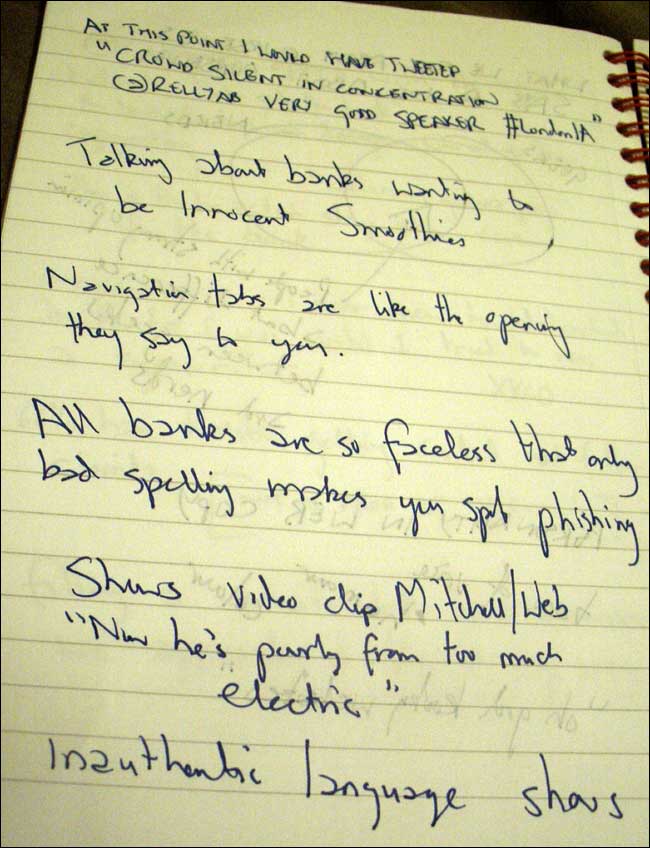 AT THIS POINT I WOULD HAVE TWEETED
"CROWD SILENT IN CONCENTRATION
@RELLYAB VERY GOOD SPEAKER #LondonIA"
Talking about banks wanting to
be Innocent Smoothies
Navigation tabs are like the opening
they say to you.
All banks are so faceless that only
bad spelling makes you spot phishing
Shows video clip Mitchell/Web
"Now he's poorly from too much
electric"
Inauthentic language shows